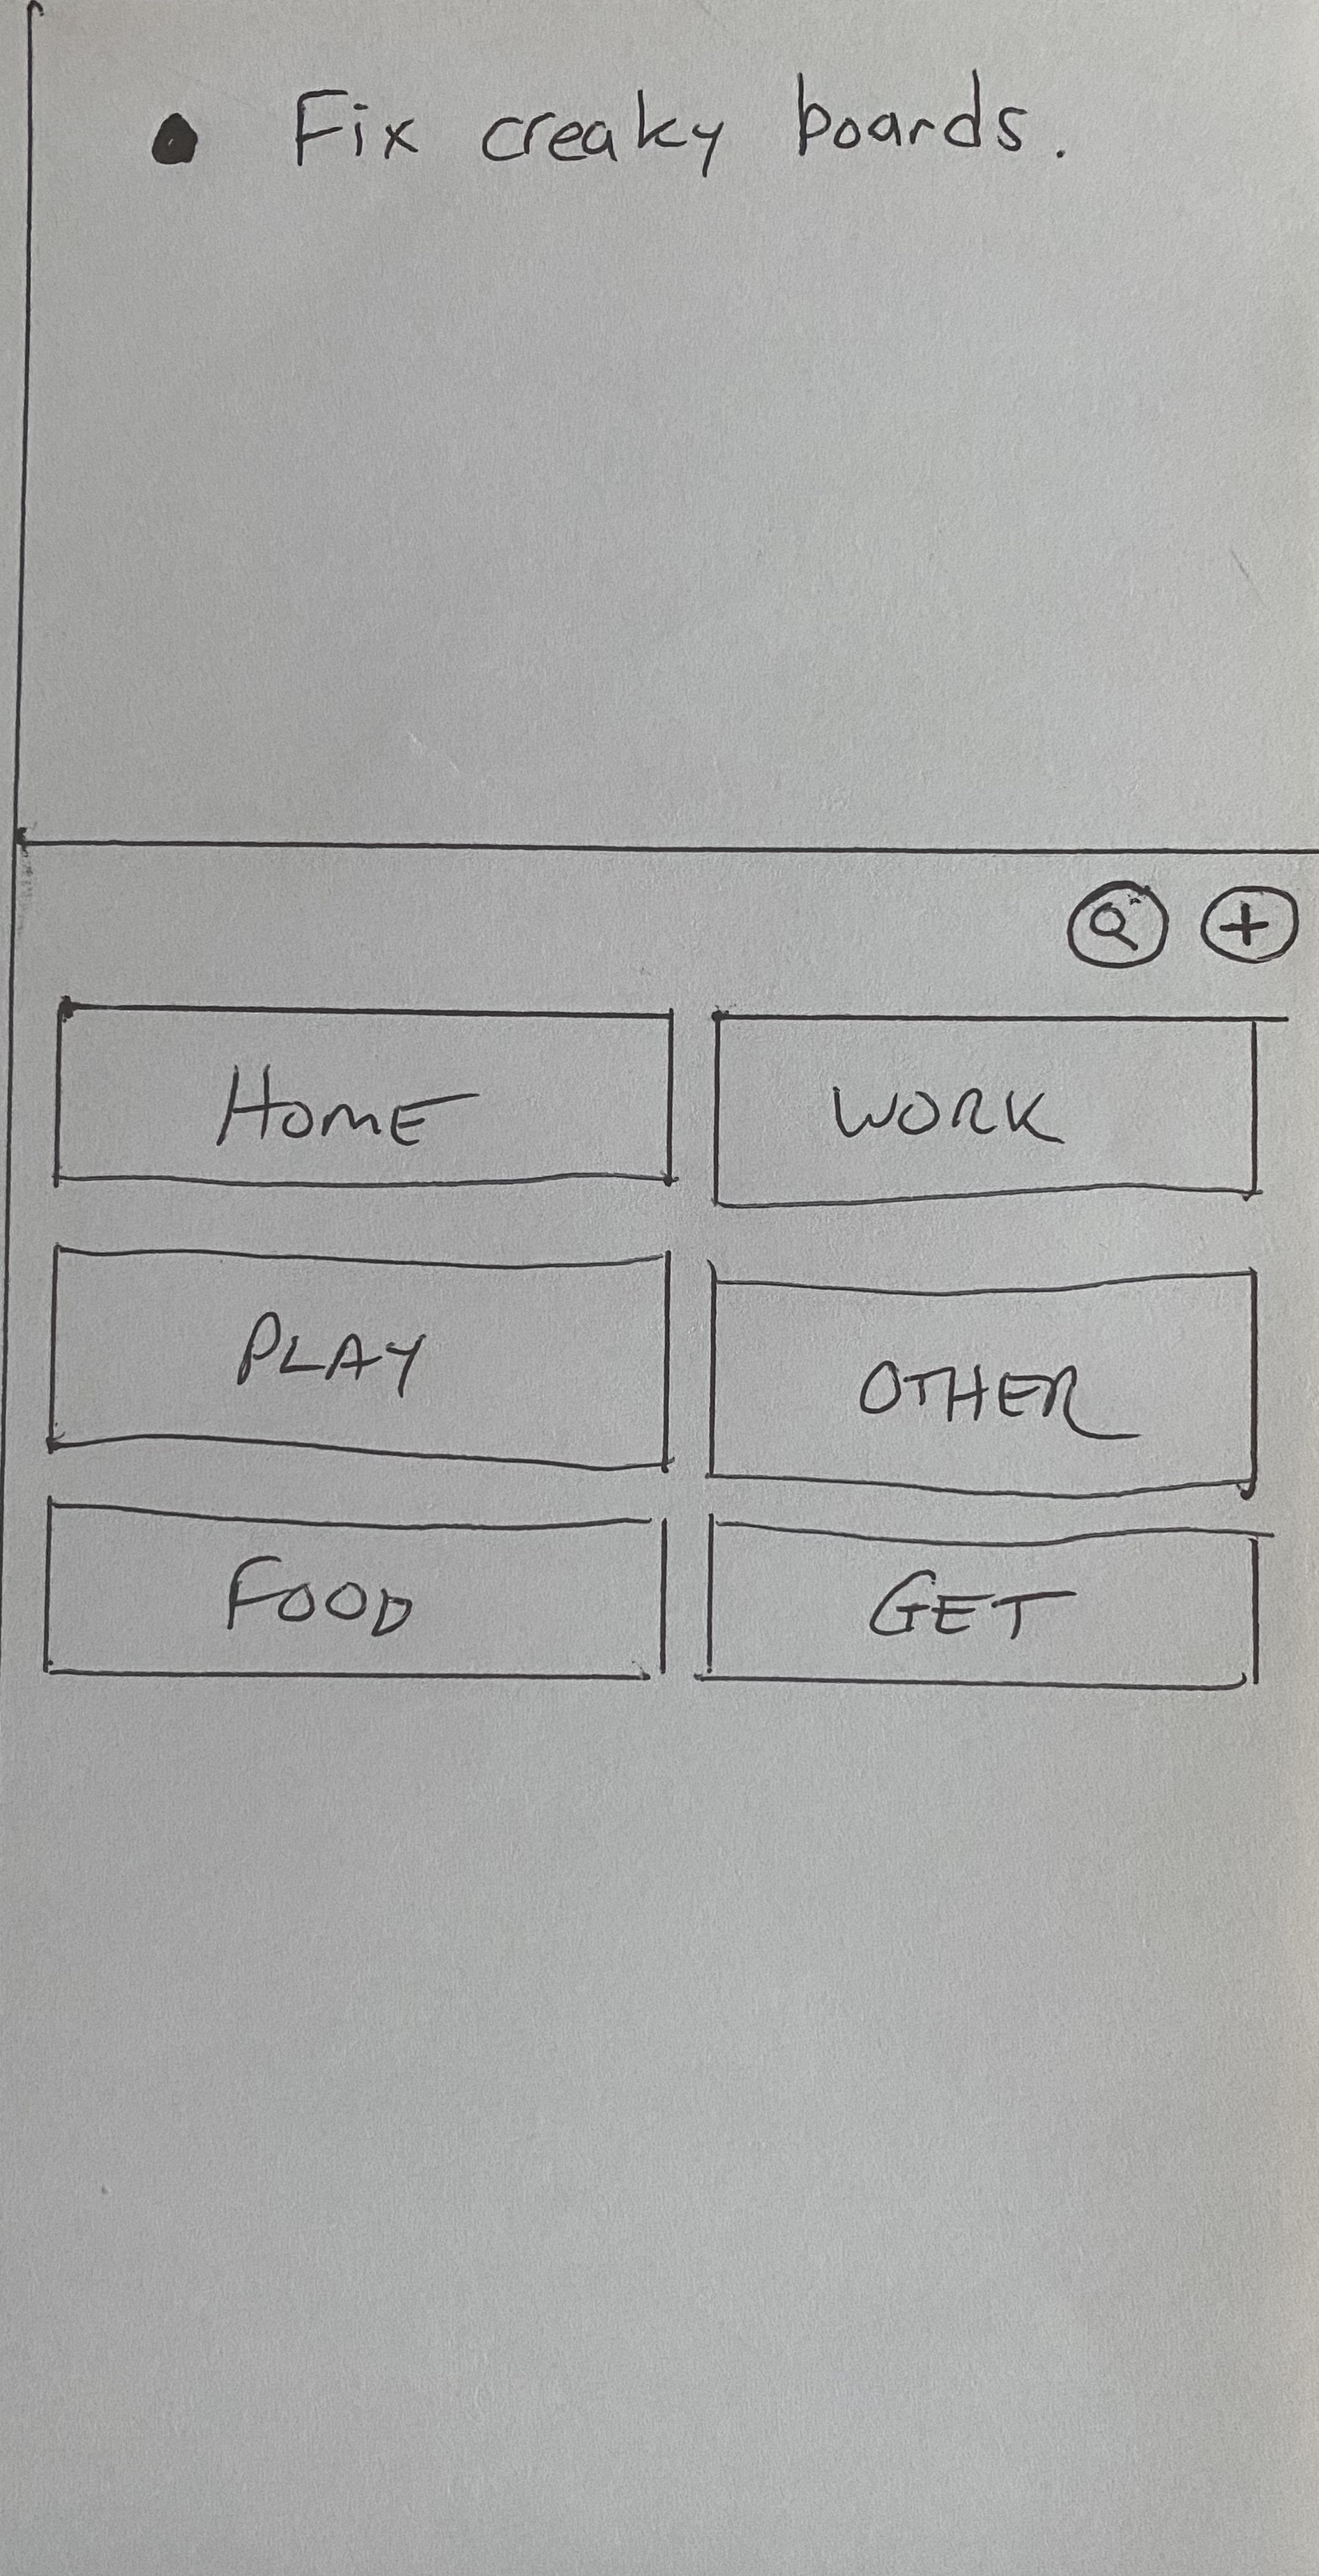 • Fix creaky boards.
+
HOME WORK
PLAY OTHER
FOOD GET